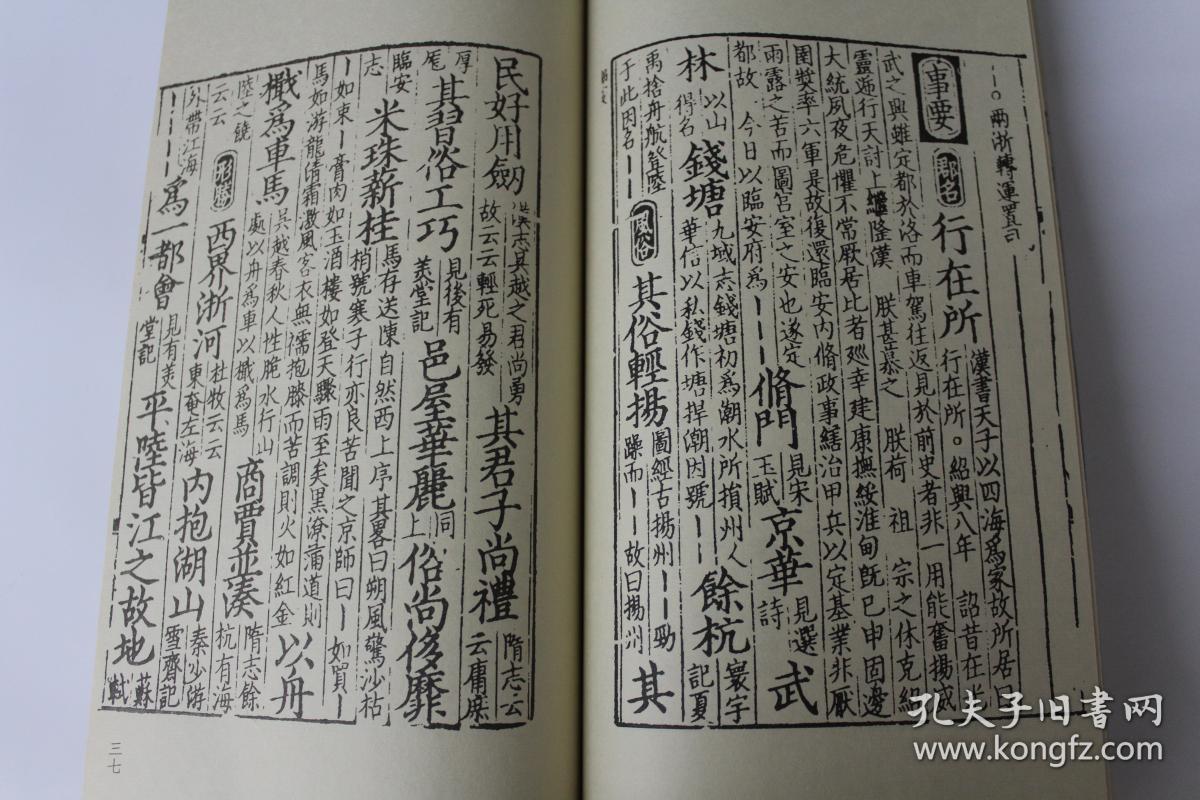 一〇兩浙轉運置司
事要 郡名 行在所 漢書天子以四海爲家故所居曰行在所。紹興八年 詔昔在光
武之興雖定都於洛而車駕往返見於前史者非一用能奮揚威
靈遞行天討上繼隆漢 朕甚慕之 朕荷 祖 宗之休克紹
大統夙夜危懼不常厥居比者廵幸建康撫綏淮甸旣已申固邊
圉奬率六軍是故復還臨安內脩政事繕治甲兵以定基業非厭
雨露之苦而圖宮室之安也遂定都故 今日以臨安府爲一一一 脩門 見宋玉賦 京華 見選詩 武
林 以山得名 錢塘 九域志錢塘初爲潮水所損州人華信以私錢作塘捍潮因號一一 餘杭 寰宇記夏
禹捨舟航登陸于此因名一一 風俗 其俗輕揚 圖經古揚州一一勁躁而一一故曰揚州 其
民好用劒 漢志其越之君尚勇故云云輕死易發 其君子尚禮 隋志云云庸庶
厚厖 其習俗工巧 見後有美堂記 邑屋華麗 同上 俗尚侈靡
臨安志 米珠薪桂 馬存送陳自然西上序其畧曰朔風驚沙枯梢號寒子行亦良苦聞之京師曰一如買一
一如東一膏肉如玉酒樓如登天驟雨至矣黑潦滿道則
馬如游龍淸霜激風客衣無襦抱膝而苦調則火如紅金 以舟
檝爲車馬 吳越春秋人性脆水行山處以舟爲車以檝爲馬 商賈並湊 隋志餘杭有海
陸之饒云云 形勝 西界浙河 杜牧云云東奄左海 內抱湖山 秦少游雪齋記
外帶江海一一一一 爲一都會 見有美堂記 平陸皆江之故地 蘇軾
三七
孔夫子旧书网
www.kongfz.com